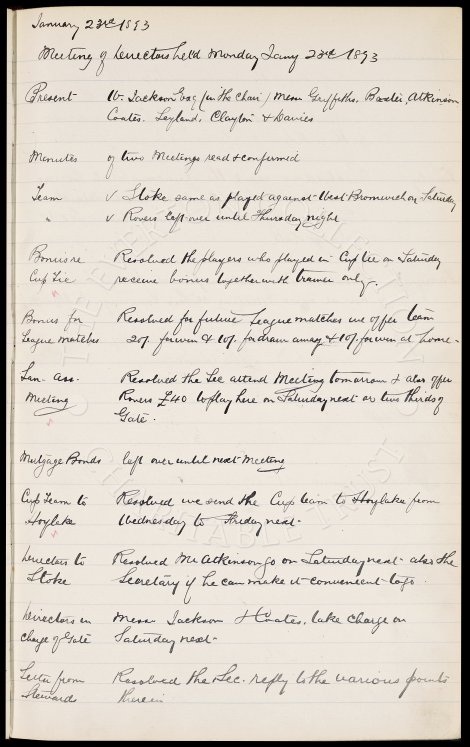 January 23rd 1893
Meeting of Directors held Monday Jany 23rd 1893
Present W. Jackson Esq (in the Chair) Messrs Griffiths, Baxter, Atkinson
Coates. Leyland, Clayton & Davies
Minutes of two Meetings read & confirmed
Team v Stoke same as played against West Bromwich on Saturday
" v Rovers left over until Thursday night
Bonus re Resolved the players who played in Cup tie on Saturday
Cup Tie receive bonus together with trainer only.
Bonus for Resolved for future League matches we offer team
League matches 20/- for win & 10/- for draw away & 10/- for win at home -
Lan. Ass. Resolved the Sec attend Meeting tomorrow & also offer
Meeting Rovers £40 to play here on Saturday next or two thirds of
Gate.
Mortgage Bonds left over until next Meeting
Cup Team to Resolved we send the Cup team to Hoylake from
Hoylake Wednesday to Friday next -
Directors to Resolved Mr Atkinson go on Saturday next also the
Stoke Secretary if he can make it convenient to go.
Directors in Messrs Jackson & Coates, take charge on
charge of Gate Saturday next -
Letter from Resolved the Sec. reply to the various points
Stewards therein